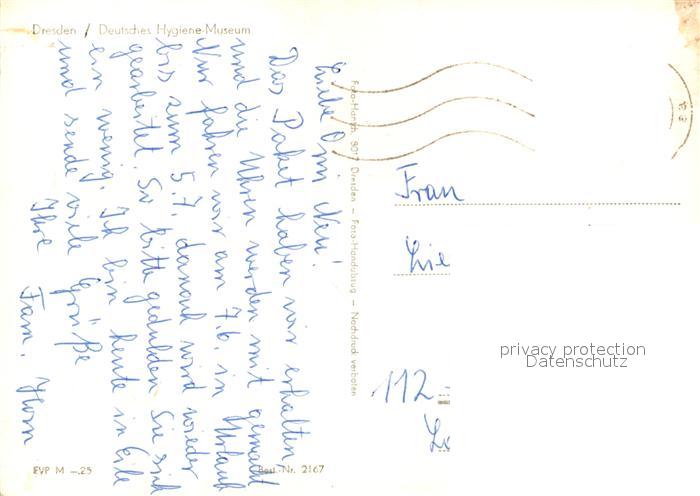 Dresden / Deutsches Hygiene-Museum
Liebe Omi Neu!
Das Paket haben wir erhalten
und die Uhren werden mit gemacht
Nur fahren wir am 7.6. in Urlaub
bis zum 5.7. danach wird wieder
gearbeitet. So bitte gedulden Sie sich
ein wenig. Ich bin heute in Eile
und sende viele Grüße
Ihre Fam. Horn
EVP M -.25
Best.-Nr. 2167
Foto-Hartsch, 8017 Dresden - Foto-Handabzug - Nachdruck verboten
Frau
Lie
112
privacy protection
Datenschutz